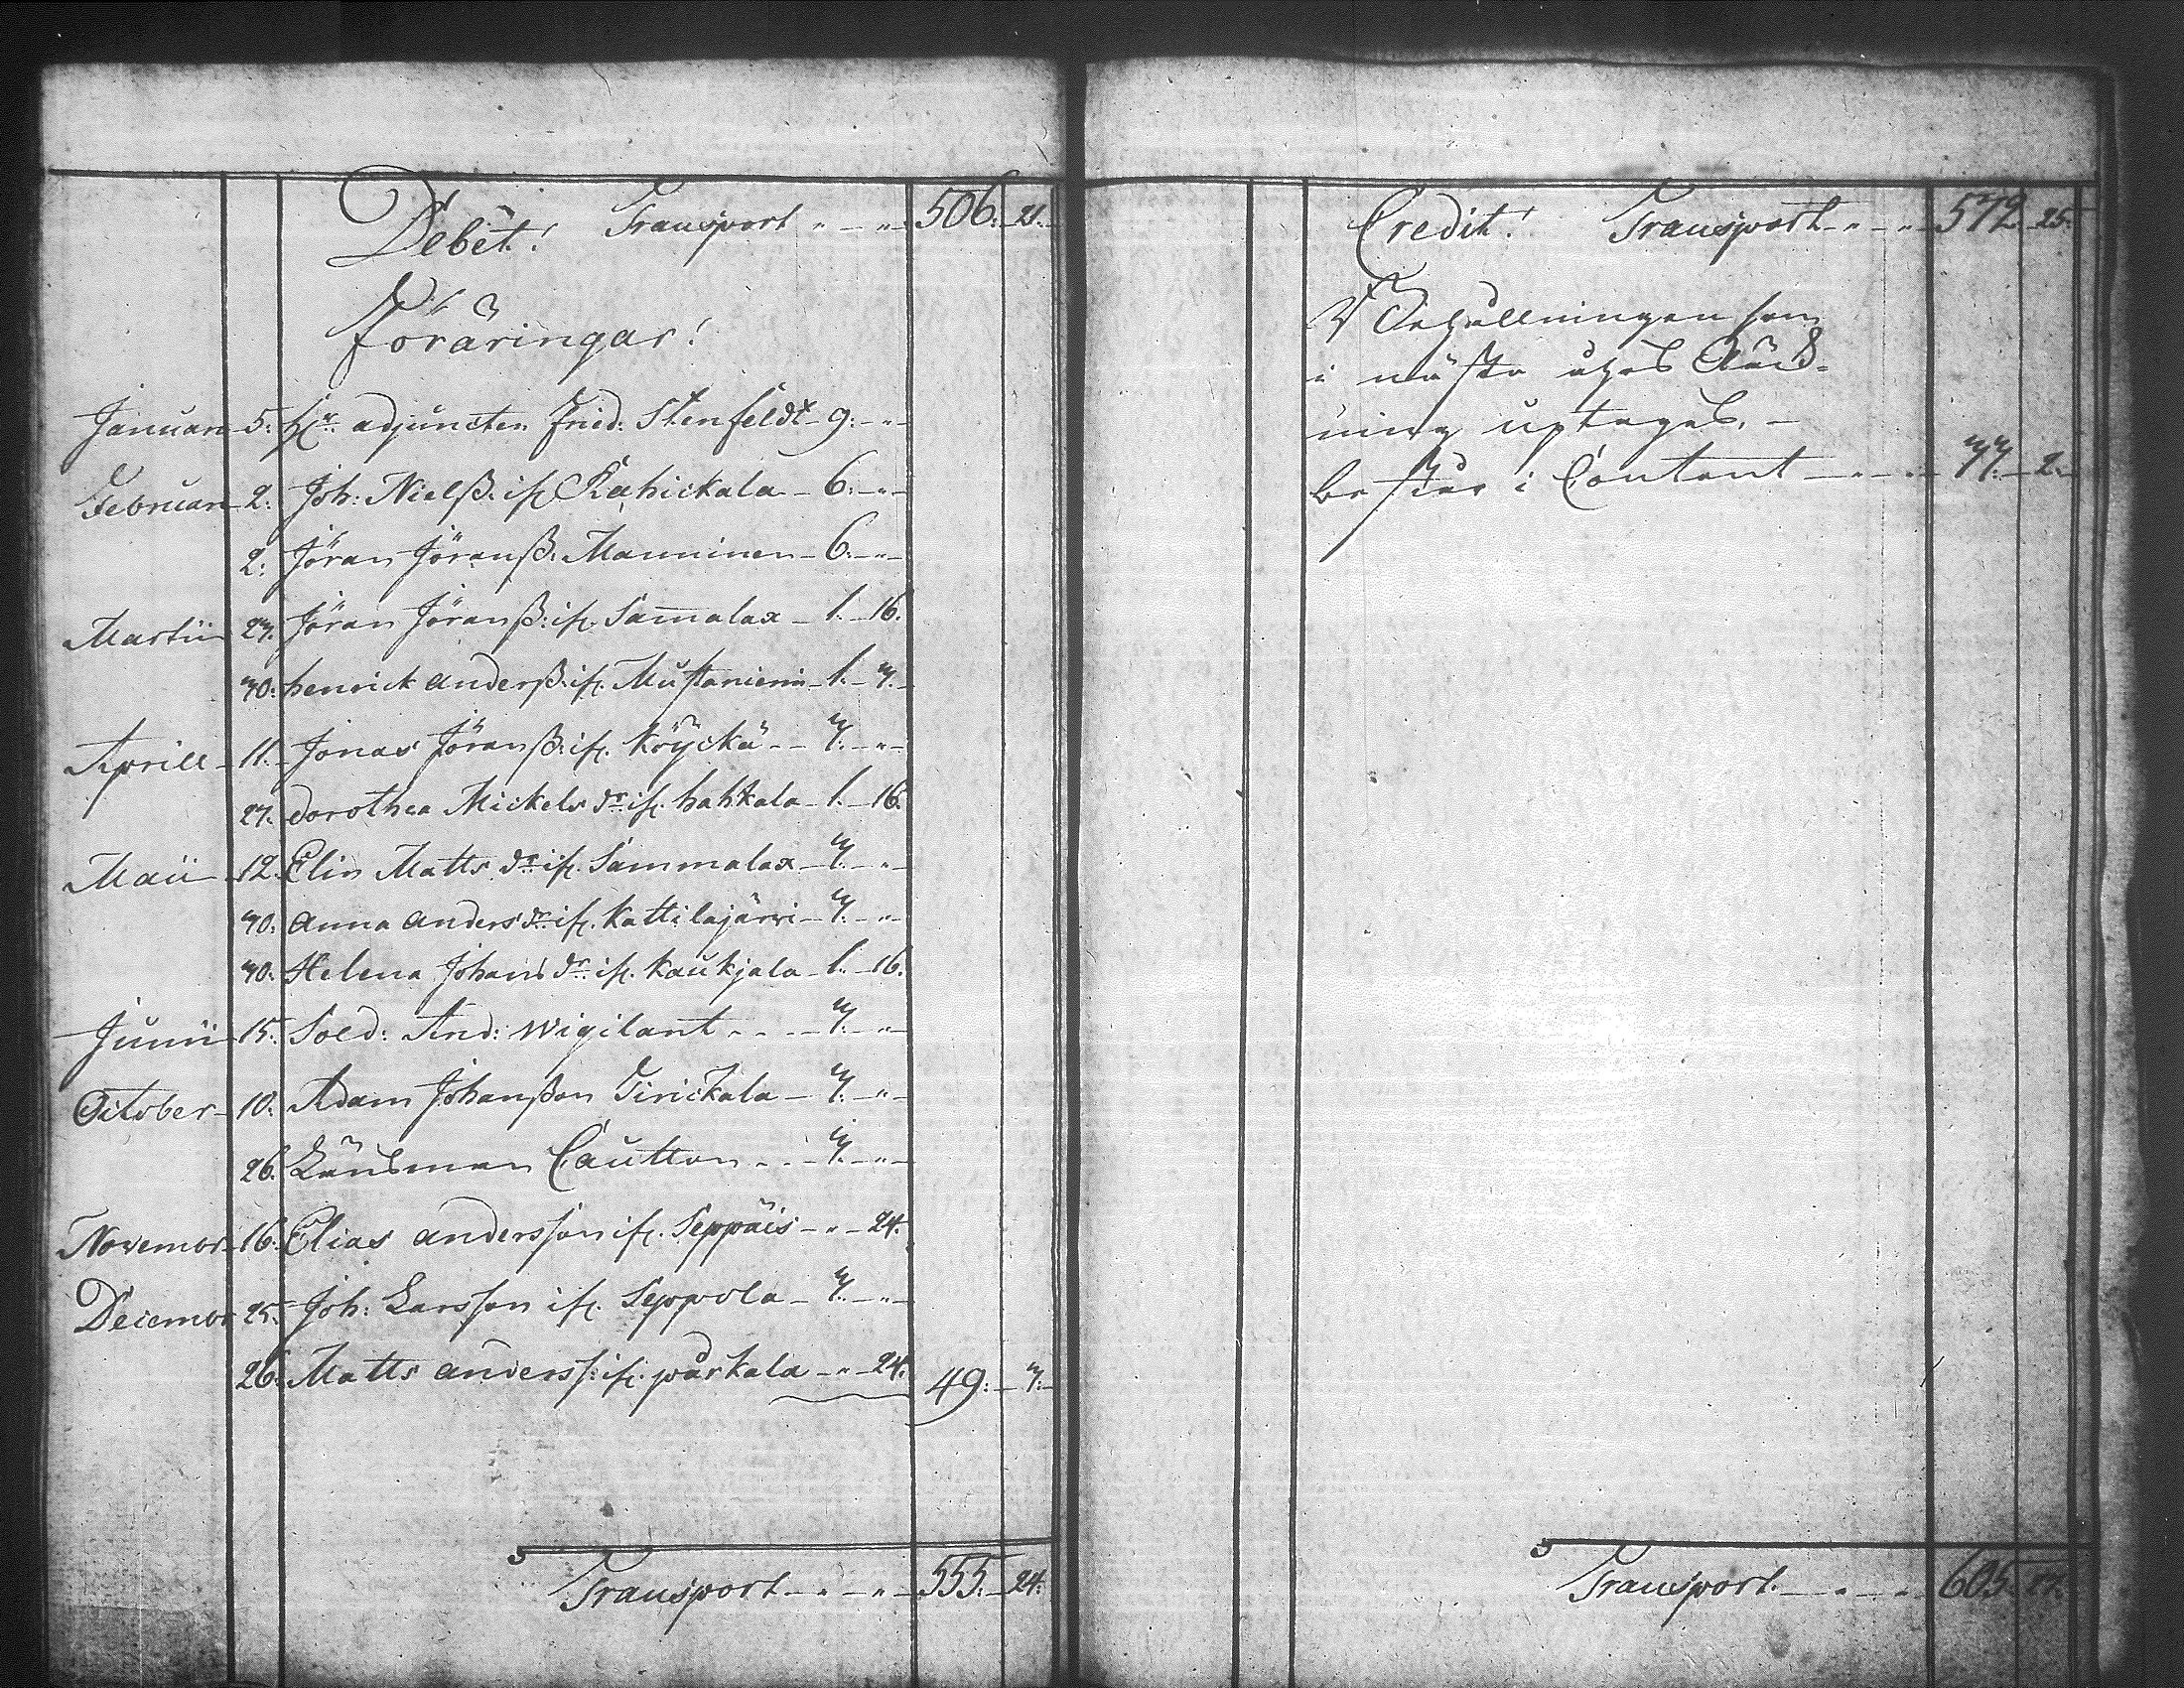 Debet! Transport „ — „ 506: 21.
Föräringar!
Januari 5: Hr adjuncten Fried: Stenfeldt 9: „
Februari 2: Joh: Nielß: ifr. Rahickala 6: „
2: Jöran Jöranß: Manninen 6: „
Martii 23. Jöran Jöranß: ifr. Sam̅alax 1. 16.
30: henrick anderß: ifr. Mustanierin 1. 3.
Aprill 11. Jonas Jöranß: ifr. Köÿckä 3: „
23. dorothea Mickels dr ifr. hahkala 1. 16.
Maii 12. Elin Matts dr ifr. Sammalax 3: „
30: anna anders dr ifr. Kattilajärvi 3: „
30: Helena Johans dr ifr. Kaukjala 1. 16.
Junii 15. Sold: And: Wigilant 3: „
October 10. Adam Johanßon Tirickala 3: „
26. Länsman Cautton 3: „
Novembr 16. Elias andersson ifr. Seppäis „ 24.
Decembr 25. Joh: Larsson ifr. Seppola 3: „
26. Matts anderss: ifr. pårkala „ 24. 49: 3:
Transport „ — „ 555. 24.
Credit! Transport „ — „ 572. 25.
Behållningen som
i nästa åhrs Räk-
ning uptages,
består i Contant 33. 2.
Transport „ 605. 27.